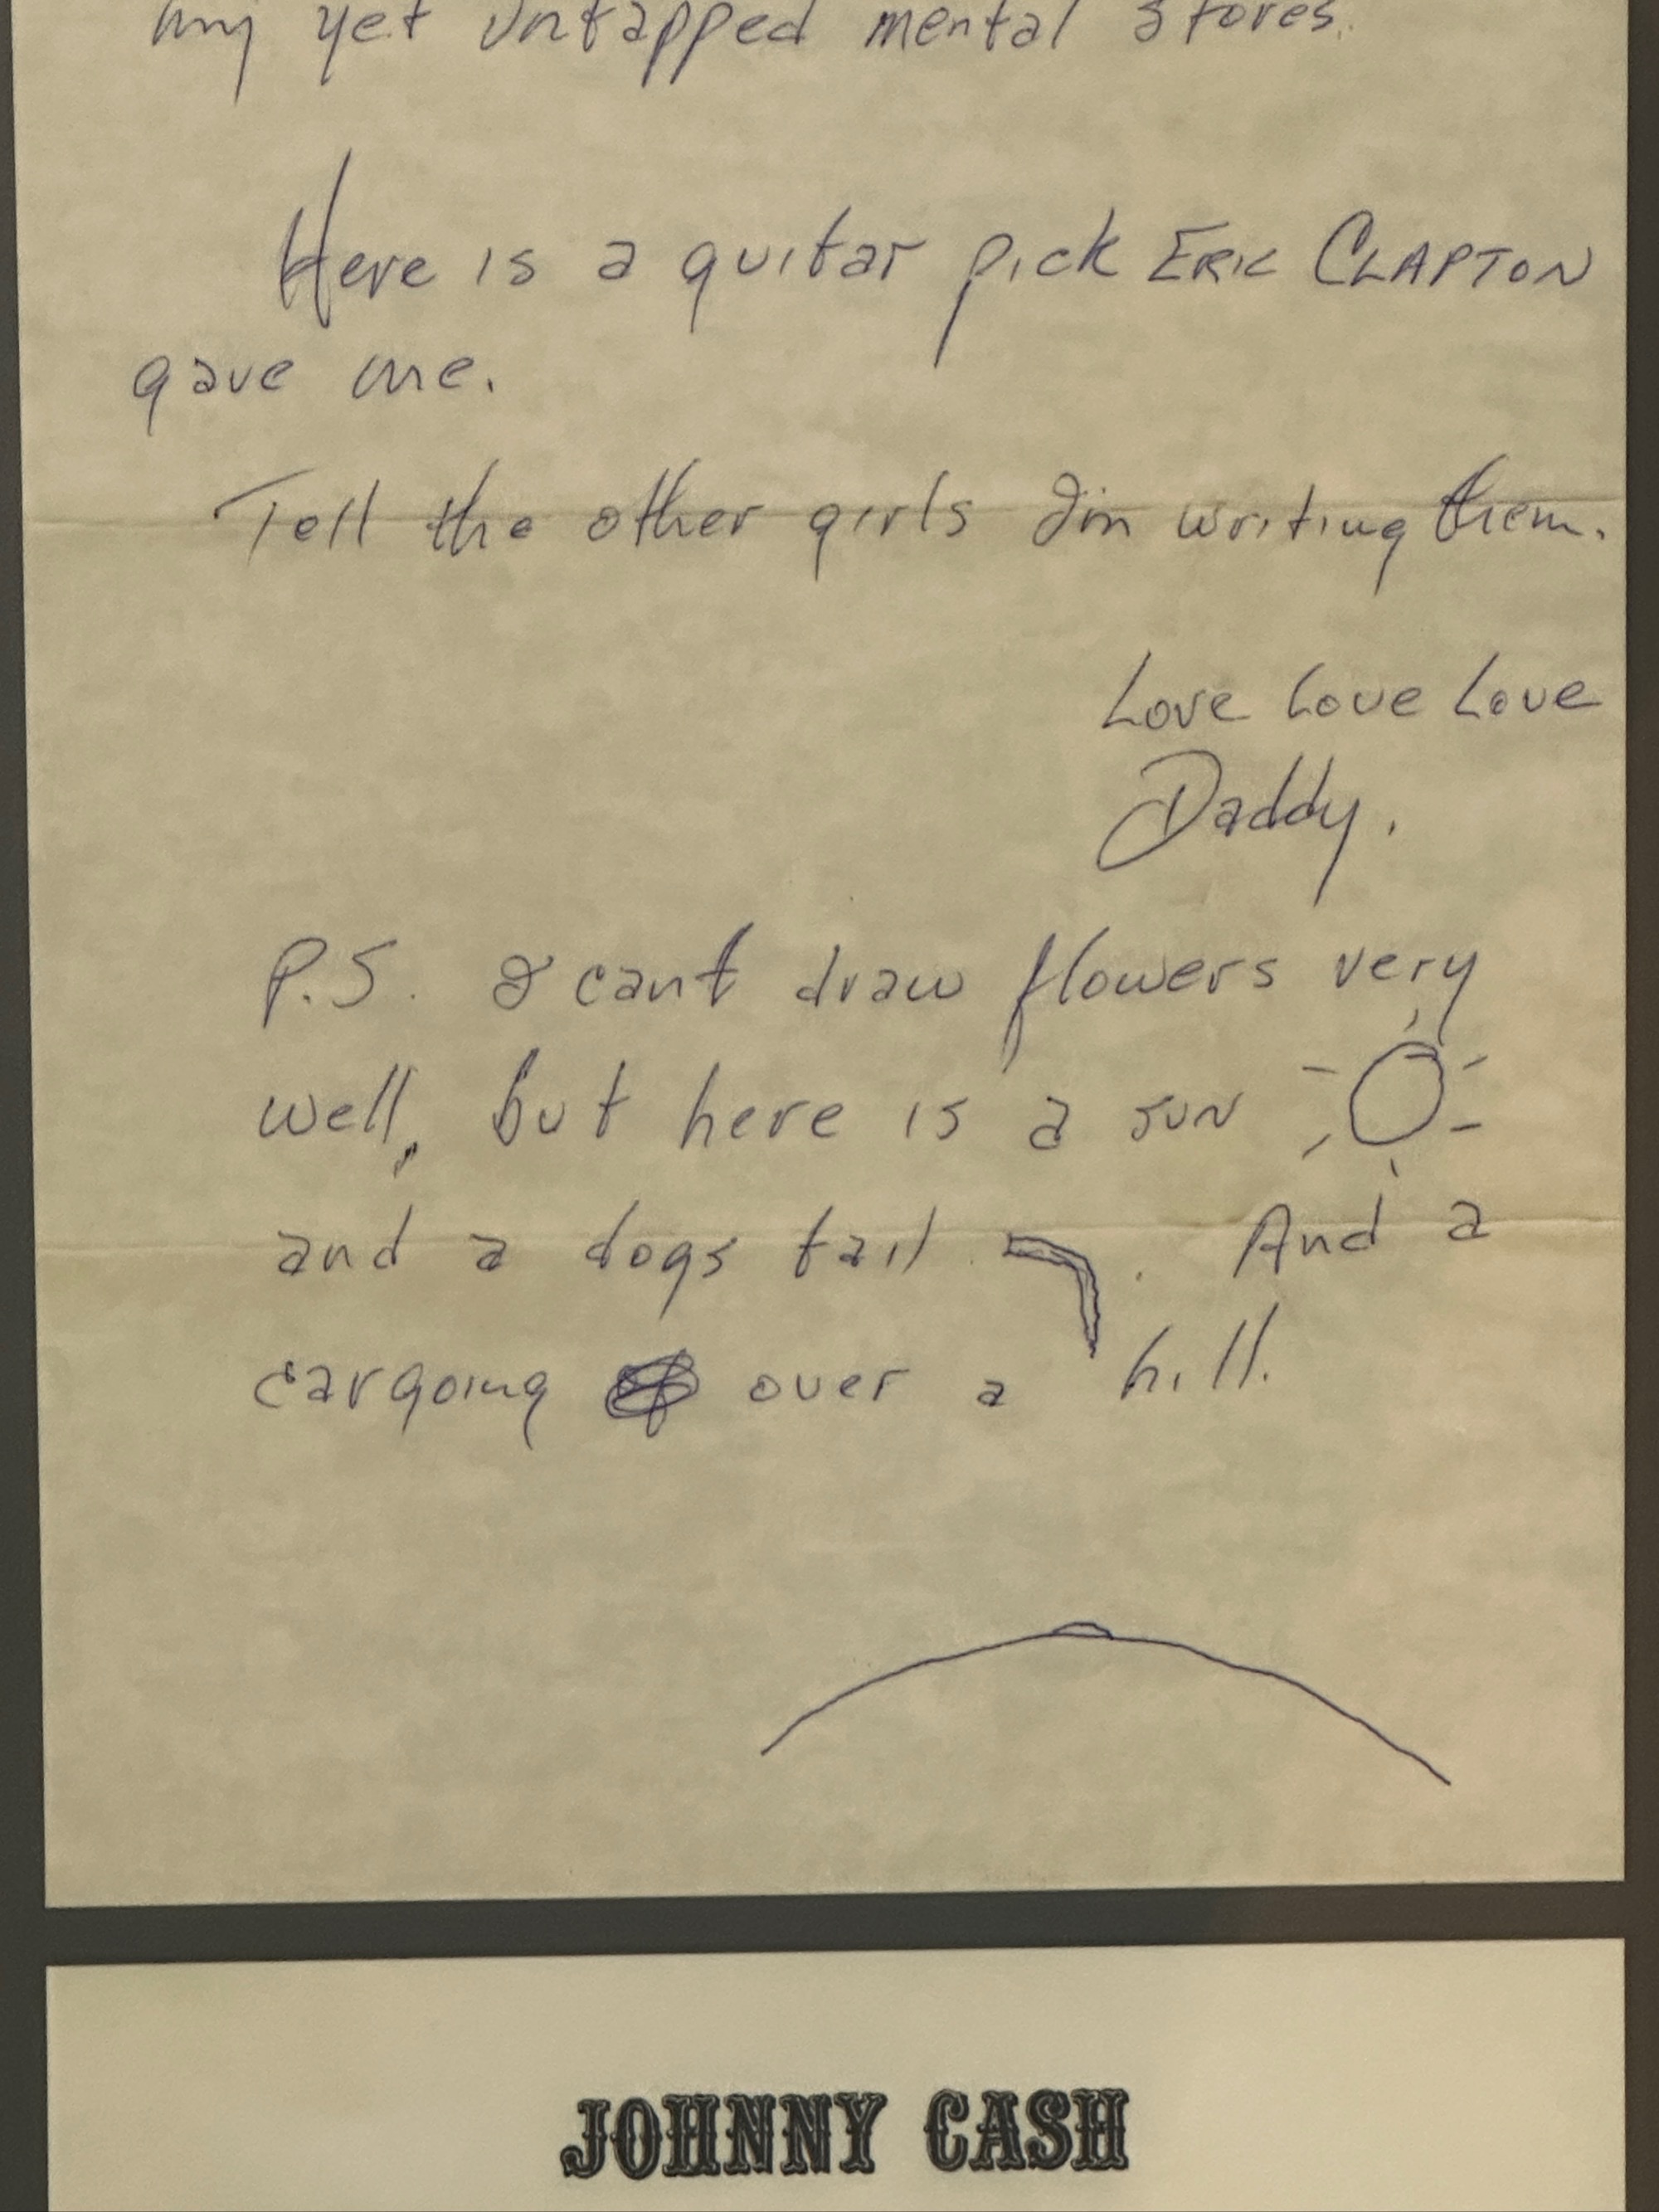 my yet untapped mental stores.
Here is a guitar pick ERIC CLAPTON
gave me.
Tell the other girls I'm writing them.
Love Love Love
Daddy.
P.S. I cant draw flowers very
well, but here is a sun
and a dogs tail . And a
car going over a hill.
JOHNNY CASH